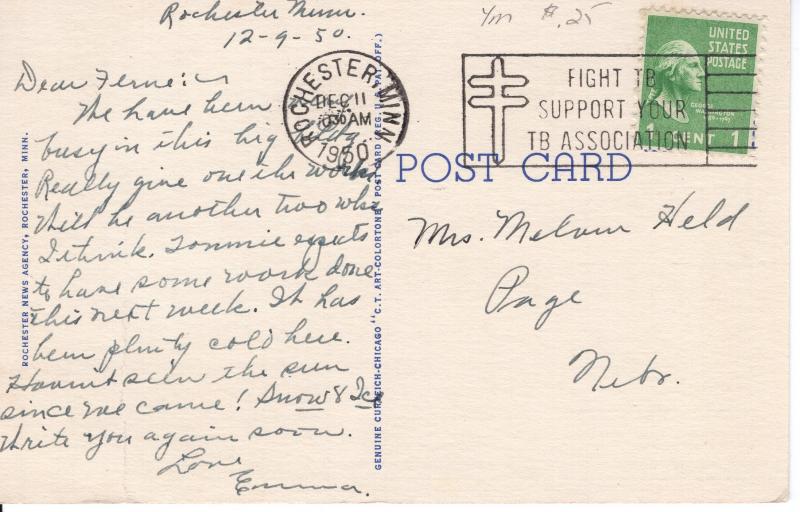 Rochester Minn.
12-9-50.
Dear Ferne:
We have been
busy in this big
Really give one the works
Will be another two wks
I think. Tommie expects
to have some work done
this next week. It has
been plenty cold here.
Havint seen the sun
since we came! Snow & Ice
Write you again soon.
Love
Emma.
ROCHESTER NEWS AGENCY, ROCHESTER, MINN.
GENUINE CURTEICH-CHICAGO "C.T. ART-COLORTONE" POST CARD (REG. U.S. PAT. OFF.)
ROCHESTER, MINN
DEC 11
AM
1950
$.25
FIGHT TB
SUPPORT YOUR
TB ASSOCIATION
UNITED
STATES
POSTAGE
GEORGE
WASHINGTON
1 CENT 1
POST CARD
Mrs. Melvin Held
Page
Nebr.